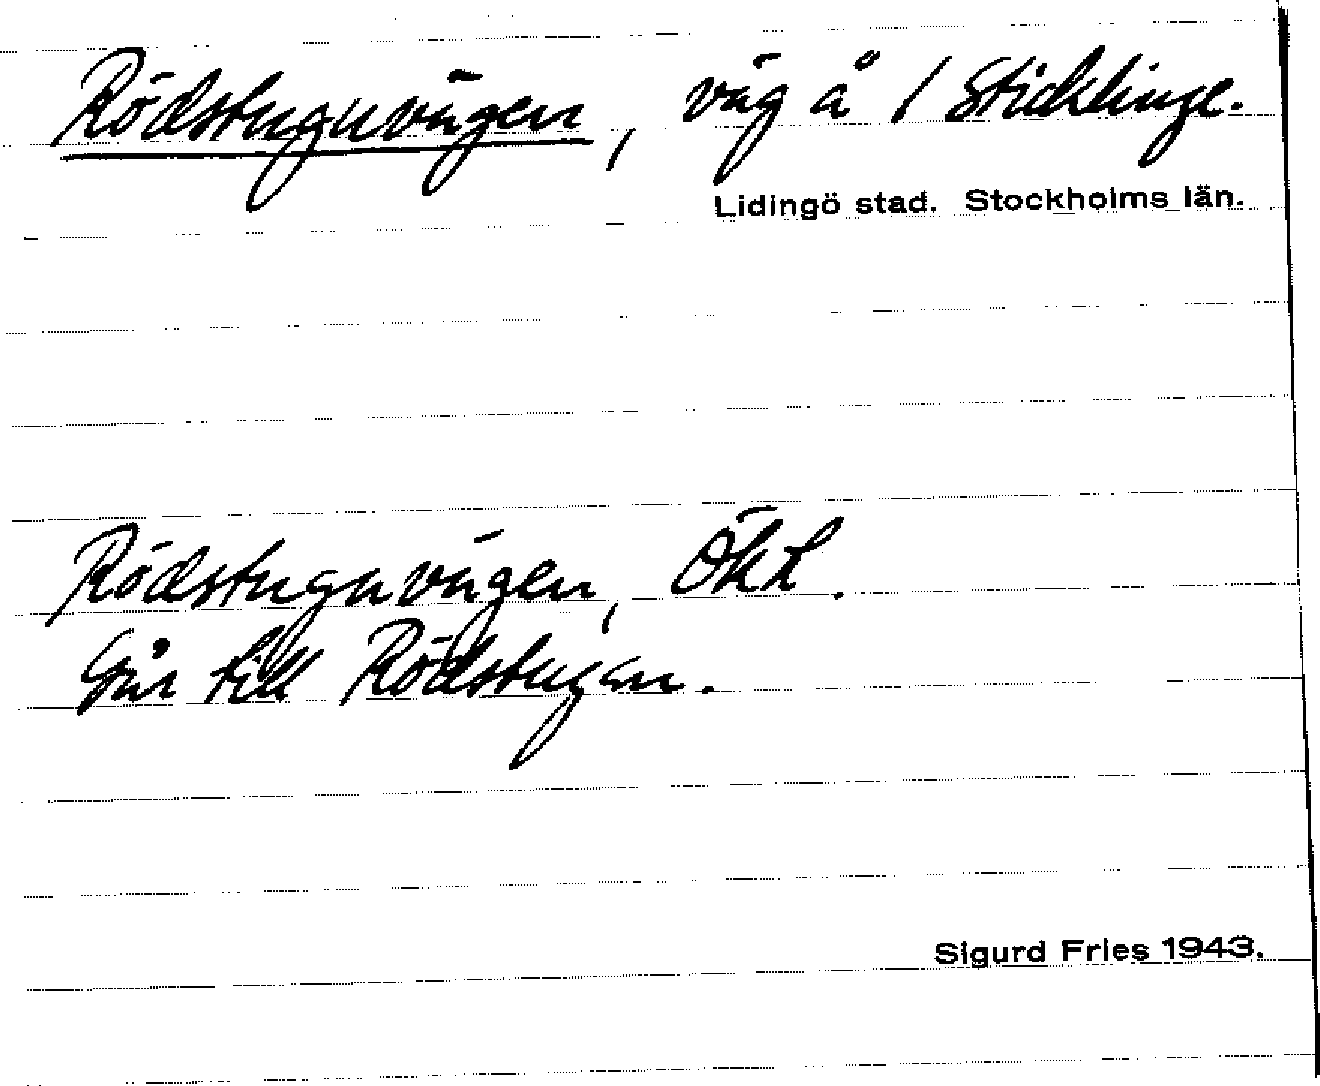 Rödstuguvägen, väg å / Sticklinge.
Lidingö stad. Stockholms län.
Rödstuguvägen, ÖKL.
Går till Rödstugan.
Sigurd Fries 1943.